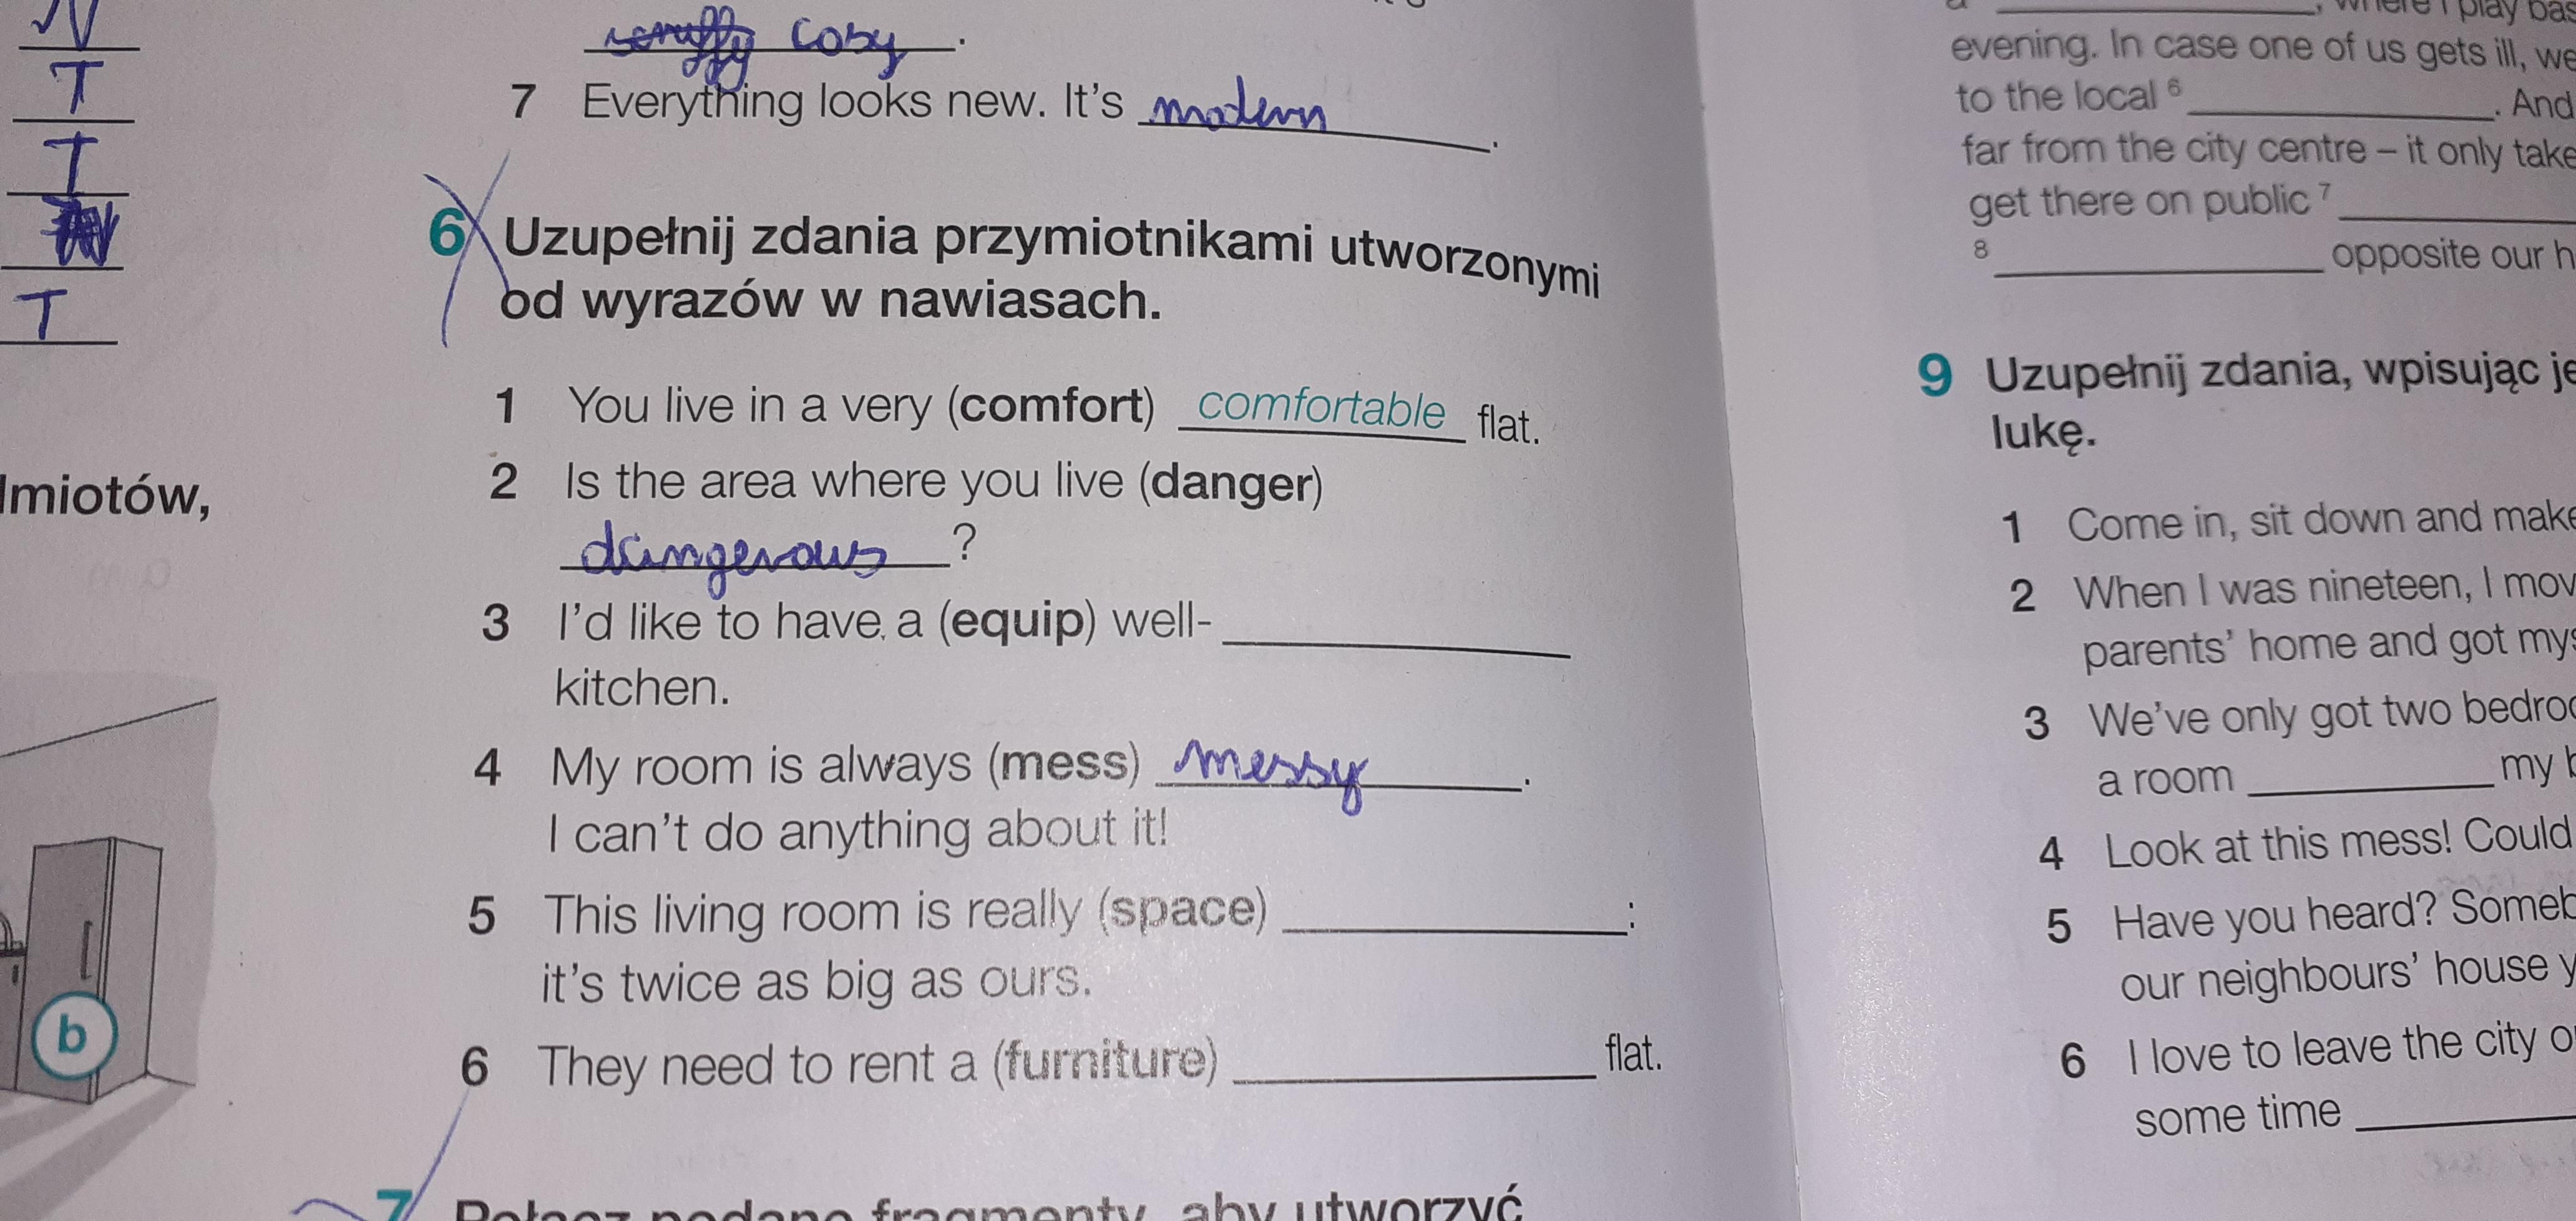 N
T
T
T
lmiotów,
b
cosy .
7 Everything looks new. It's modern .
6 Uzupełnij zdania przymiotnikami utworzonymi
od wyrazów w nawiasach.
1 You live in a very (comfort) comfortable flat.
2 Is the area where you live (danger)
dangerous ?
3 I'd like to have a (equip) well- ________
kitchen.
4 My room is always (mess) messy .
I can't do anything about it!
5 This living room is really (space) ________ :
it's twice as big as ours.
6 They need to rent a (furniture) ________ flat.
7 Połącz podane fragmenty, aby utworzyć
________ , where I play bas
evening. In case one of us gets ill, we
to the local 6 ________ . And
far from the city centre – it only take
get there on public 7 ________
8 ________ opposite our h
9 Uzupełnij zdania, wpisując je
lukę.
1 Come in, sit down and make
2 When I was nineteen, I mov
parents' home and got mys
3 We've only got two bedroo
a room ________ my b
4 Look at this mess! Could
5 Have you heard? Someb
our neighbours' house y
6 I love to leave the city o
some time ________